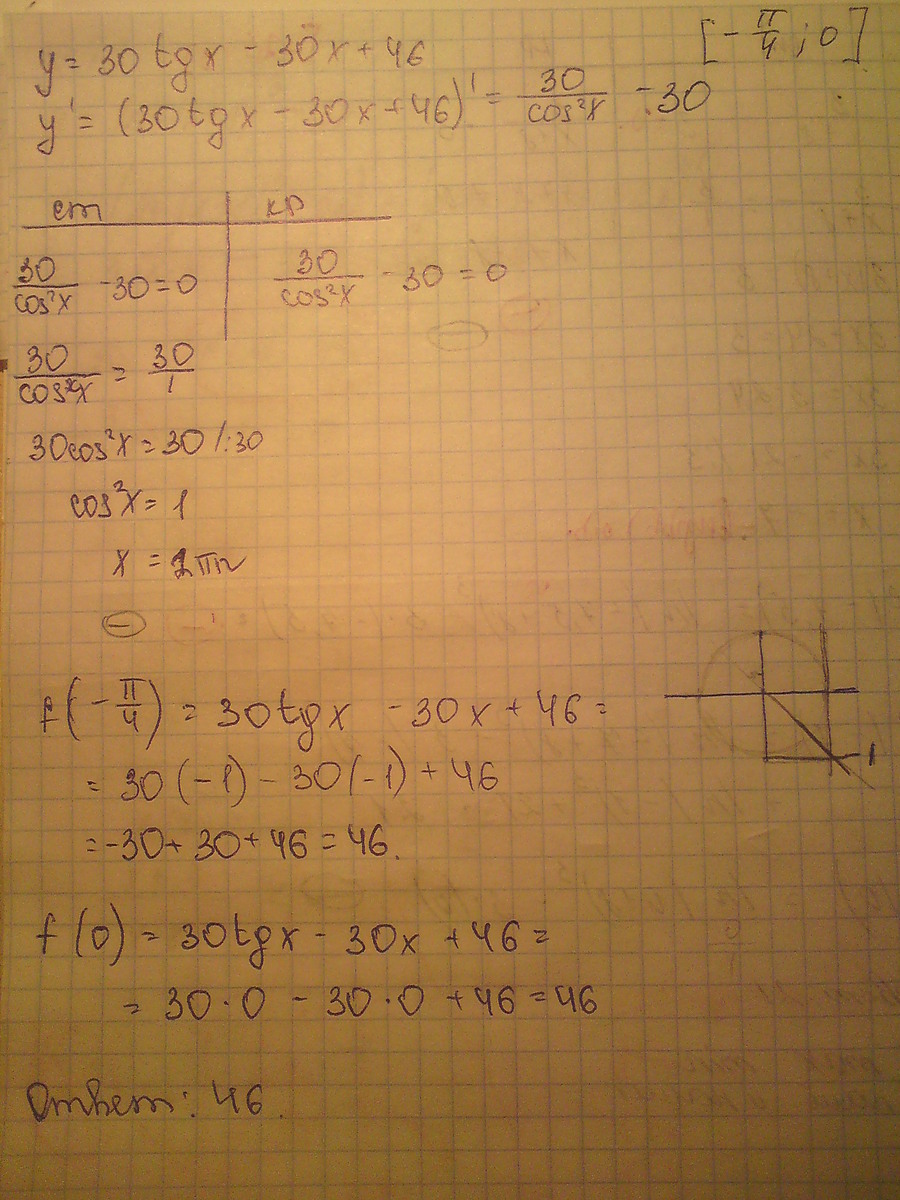 y = 30 tg x - 30x + 46 [-π/4 ; 0]
y' = (30 tg x - 30x + 46)' = 30/cos²x - 30
ст кр
30/cos²x - 30 = 0 30/cos²x - 30 = 0
30/cos²x = 30/1
30cos²x = 30 /:30
cos²x = 1
x = 2πn
-
f(-π/4) = 30 tg x - 30x + 46 =
= 30(-1) - 30(-1) + 46
= -30 + 30 + 46 = 46.
1
f(0) = 30 tg x - 30x + 46 =
= 30·0 - 30·0 + 46 = 46
Ответ: 46.